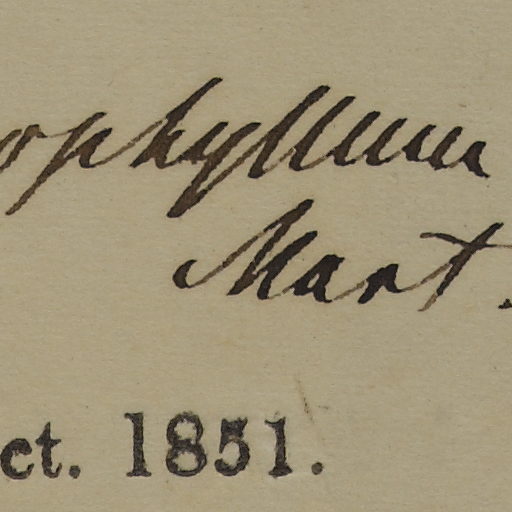 ophyllum
Mart.
ct. 1851.